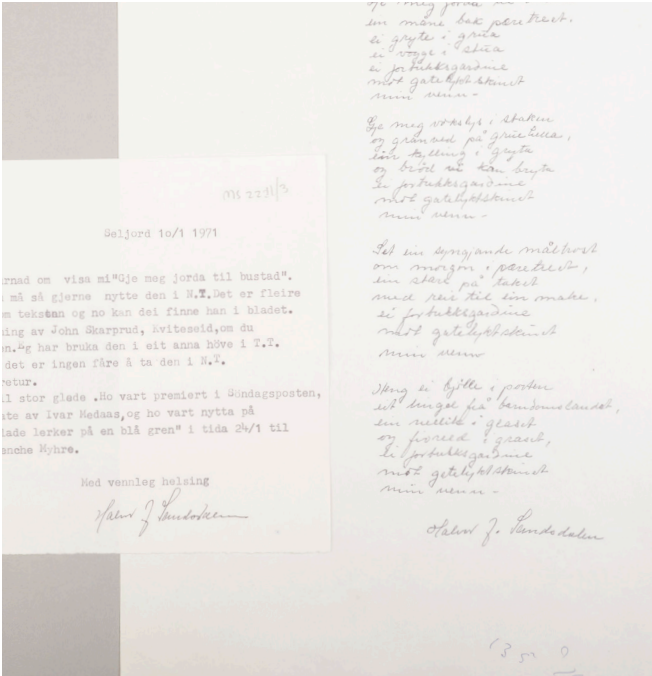 MS 2291/3
Seljord 10/1 1971
rnad om visa mi"Gje meg jorda til bustad".
må så gjerne nytte den i N.T.Det er fleire
m tekstan og no kan dei finne han i bladet.
ning av John Skarprud, Kviteseid,om du
en.Eg har bruka den i eit anna höve i T.T.
det er ingen fåre å ta den i N.T.
retur.
il stor glede .Ho vart premiert i Søndagsposten,
ate av Ivar Medaas,og ho vart nytta på
lade lerker på en blå gren" i tida 24/1 til
enche Myhre.
Med vennleg helsing
Halvor J. Sundsdalen
Gje meg jorda til
ein måne bak pæretreet,
ei gryte i grua
ei vogge i stua
ei forbukksgardine
mot gatelyktskinet
min venn -
Gje meg vokslys i staken
og granved på gruehella,
ein kylling i gryta
og brød vi kan bryta
ei forbukksgardine
mot gatelyktskinet
min venn -
Set ein syngjande måltrost
om morgon i pæretreet,
ein stare på taket
med reir til ein make,
ei forbukksgardine
mot gatelyktskinet
min venn
Heng ei bjølle i porten
eit ringel frå barndomslandet,
ein nellik i glaset
og fiorild i graset,
ei forbukksgardine
mot gatelyktskinet
min venn -
Halvor J. Sundsdalen